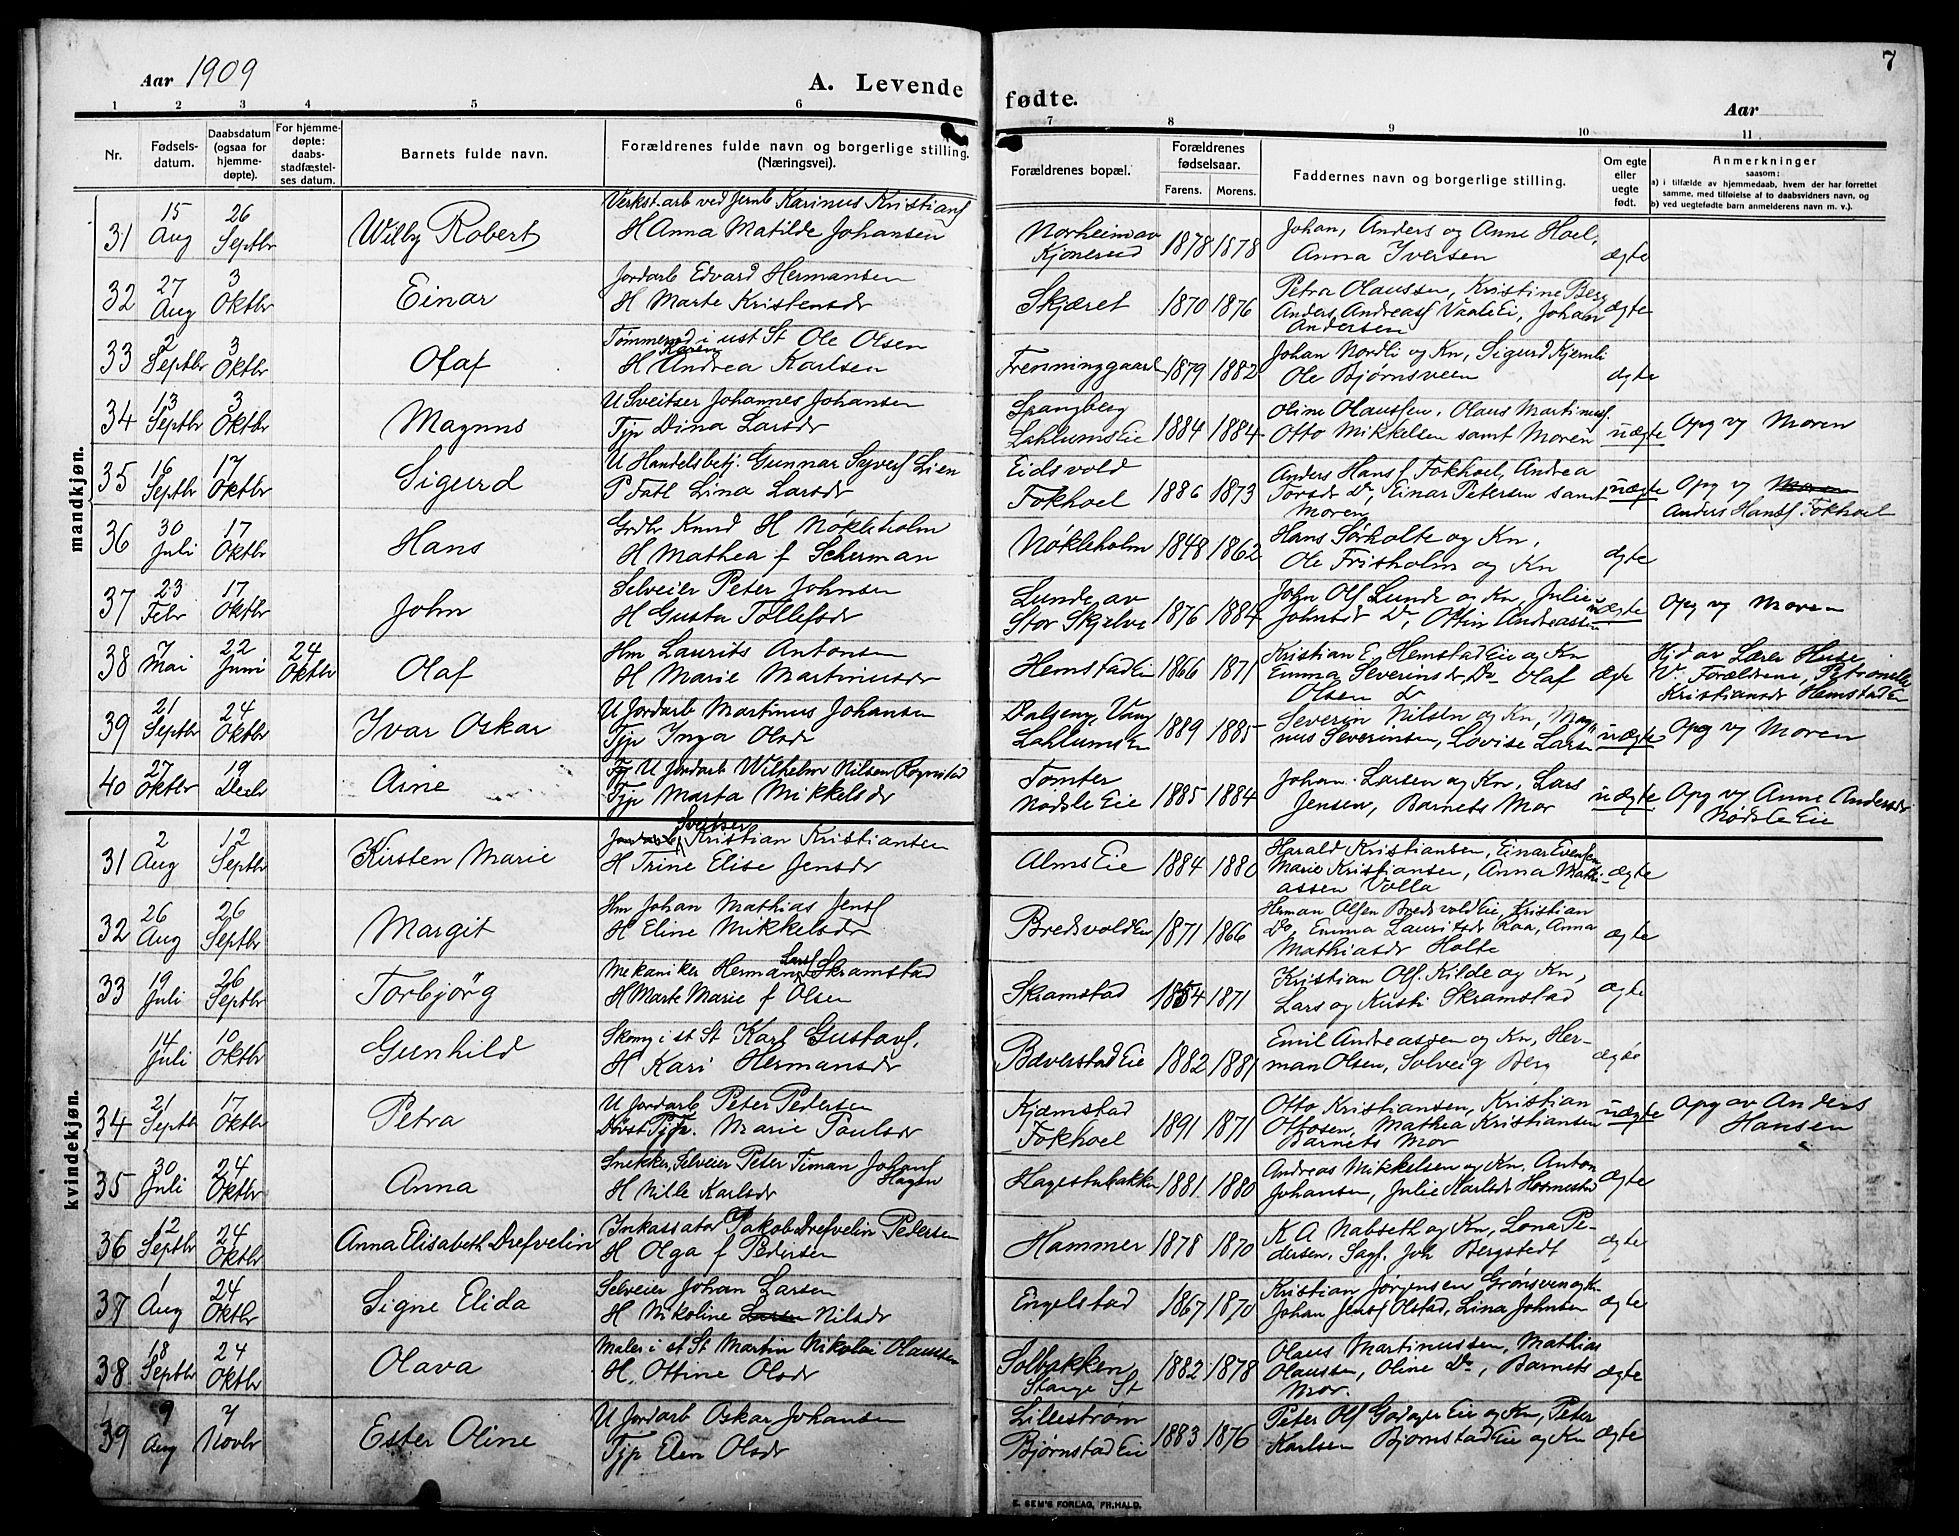 Aar 1909
A. Levende
fødte.
Aar
7
1 2 3 4 5 6 7 8 9 10 11
Nr.
Fødsels-
datum.
Daabsdatum
(ogsaa for
hjemme-
døpte).
For hjemme-
døpte:
daabs-
stadfæstel-
ses datum.
Barnets fulde navn.
Forældrenes fulde navn og borgerlige stilling.
(Næringsvei).
Forældrenes bopæl.
Forældrenes
fødselsaar.
Farens. Morens.
Faddernes navn og borgerlige stilling.
Om egte
eller
uegte
født.
Anmerkninger
saasom:
a) i tilfælde av hjemmedaab, hvem der har forrettet
samme, med tilføielse af to daabsvidners navn, og
b) ved uegtefødte barn anmelderens navn m. v.).
mandkjøn.
31 15 Aug 26 Septbr Willy Robert Verkst.arb ved Jernb Karinus Kristians
H Anna Matilde Johansen
Norheim av
Kjonerud 1878 1878 Johan, Anders og Anne Hoel,
Anna Iversen ægte
32 27 Aug 3 Oktbr Einar Jordarb Edvard Hermansen
H Marte Kristensdr
Skjæret 1870 1876 Petra Olaussen, Kristine Berg
Anders Andreass Vaaleie, Johan
Andersen ægte
33 2 Septbr 3 Oktbr Olaf i ust St Ole Olsen
H Karen Andrea Karlsen
Frenninggaard 1879 1882 Johan Nordli og Kn, Sigurd Kjernli
Ole Bjørnsveen ægte
34 13 Septbr 3 Oktbr Magnus U Sveitser Johannes Johansen
Tjp Dina Larsdr
Spangberg
Lahlums Eie 1884 1884 Oline Olaussen, Olaus Martinuss.
Otto Mikkelsen samt Moren uægte Opg vg Moren
35 16 Septbr 17 Oktbr Sigurd U Handelsbetj. Gunnar Syvers Lien
P Fatl Lina Larsdr
Eidsvold
Fokhoel 1886 1873 Anders Hans f Fokhoel, Andrea
Torsdr Do, Einar Petersen samt
Moren uægte Opg vg Moren
Anders Hanss Fokhoel
36 30 Juli 17 Oktbr Hans Grdbr Knud H Nökleholm
H Mathea f Scherman
Nøkleholm 1848 1862 Hans Sørholte og Kn,
Ole Frisholm og Kn ægte
37 23 Febr 17 Oktbr John Selveier Peter Johnsen
H Gusta Tollefsdr
Lunde av
Stor Skjelve 1876 1884 John Ols Lunde og Kn, Julie
Johnsdr Do, Ottin Andreassen uægte Opg vg Moren
38 7 Mai 22 Juni 24 Oktbr Olaf Hm Laurits Antonsen
H Marie Martinusdr
Hemstad Eie 1866 1871 Kristian E. Hemstad Eie og Kn
Emma Severinsdr Do Olaf
Olsen Do ægte Hjd av Lærer Huse
V. Forældrene, Petronelle
Kristiansdr Hemstad Eie
39 21 Septbr 24 Oktbr Ivar Oskar U Jordarb Martinus Johansen
Tjp Inga Olsdr
Dalseng, Vang
Lahlums Eie 1889 1885 Severin Nilsen og Kn, Mag-
nus Severinsen, Lovise Larsn uægte Opg vg Moren
40 27 Oktbr 19 Decbr Arne U Jordarb Wilhelm Nilsen Rognstad
Tjp Marta Mikkelsdr
Tomter
Nødsle Eie 1885 1884 Johan Larsen og Kn, Lars
Jensen, Barnets Mor uægte Opg vg Anne Andersdr
Nødsle Eie
kvindekjøn.
31 2 Aug 12 Septbr Kirsten Marie Jordarb Sveitser Kristian Kristiansen
H Trine Elise Jensdr
Alms Eie 1884 1880 Harald Kristiansen, Einar Evensen
Marie Kristiansen, Anna Mathi-
assen Volla ægte
32 26 Aug 26 Septbr Margit Hm Johan Mathias Jenss
H Eline Mikkelsdr
Bredvold Eie 1871 1866 Herman Olsen Bredsvold Eie, Kristian
Do, Emma Lauritsdr Raa, Anna
Mathiasdr Holte ægte
33 19 Juli 26 Septbr Torbjörg Mekaniker Herman Larss Skramstad
H Marte Marie f Olsen
Skramstad 1854 1871 Kristian Ols. Kilde og Kn,
Lars og Kristi Skramstad ægte
14 Juli 10 Oktbr Gunhild Skomg i st St Karl Gustavs.
H Kari Hermansdr
Bæverstad Eie 1882 1881 Emil Andreassen og Kn, Her-
man Olsen, Solveig Berg ægte
34 21 Septbr 17 Oktbr Petra U Jordarb Peter Pedersen
Døvst Tjp. Marie Paulsdr
Kjæmstad
Fokhoel 1891 1871 Otto Kristiansen, Kristian
Ottosen, Mathea Kristiansen
Barnets Mor uægte Opg av Anders
Hansen
35 30 Juli 24 Oktbr Anna Snekker, Selveier Peter Timan Johans
Hagen
H Nille Karlsdr
Hagestubakken 1881 1880 Andreas Mikkelsen og Kn. Anton
Johansen, Julie Karlsdr Hosmestad ægte
36 12 Septbr 24 Oktbr Anna Elisabeth Drefvelin Inkassator Jakob Drefvelin Pedersen
H Olga f Pedersen
Hammer 1878 1870 K A Nabseth og Kn, Lona Pe-
dersen, Sagf. Joh Bergstedt ægte
37 1 Aug 24 Oktbr Signe Elida Selveier Johan Larsen
H Nikoline Larsen Nilsdr
Engelstad 1867 1870 Kristian Jørgensen Grønsven og Kn
Johan Jenss Olstad, Lina Johnsen ægte
38 18 Septbr 24 Oktbr Olava Maler i st St Martin Nikolai Olaussen
H. Ottine Olsdr
Solbakken
Stange St 1882 1878 Olaus Martinussen, Mathias
Olaussen, Oline Do, Barnets
Mor. ægte
39 9 Aug 7 Novbr Ester Oline U Jordarb Oskar Johansen
Tjp Elen Olsdr
Lillestrøm
Bjørnstad Eie 1883 1876 Peter Ols Godager Eie og Kn, Peter
Karlsen Bjørnstad Eie og Kn ægte
E. SEM'S FORLAG, FR.HALD.